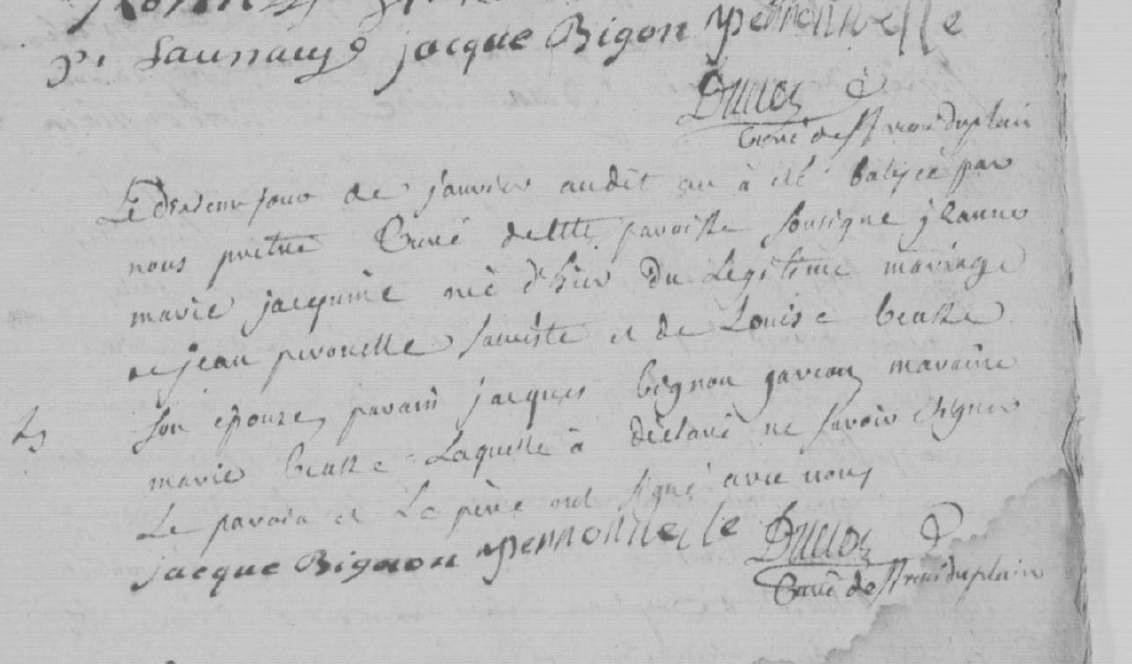 Saunay jacque Bigon
Duclos
Curé de St remi du plain
Le dixieme jour de janvier audit an à été batisée par
nous pretre Curé de cette paroisse soussigné jeanne
marie jacquine née d'hier du Legitime mariage
de jean peronelle et de Louise beasse
son epouse, parain jacques bignon garcon maraine
marie beasse Laquelle à déclaré ne savoir signer
Le parain et Le pere ont signé avec nous
jacque Bignon Duclos
Curé de St remi du plain